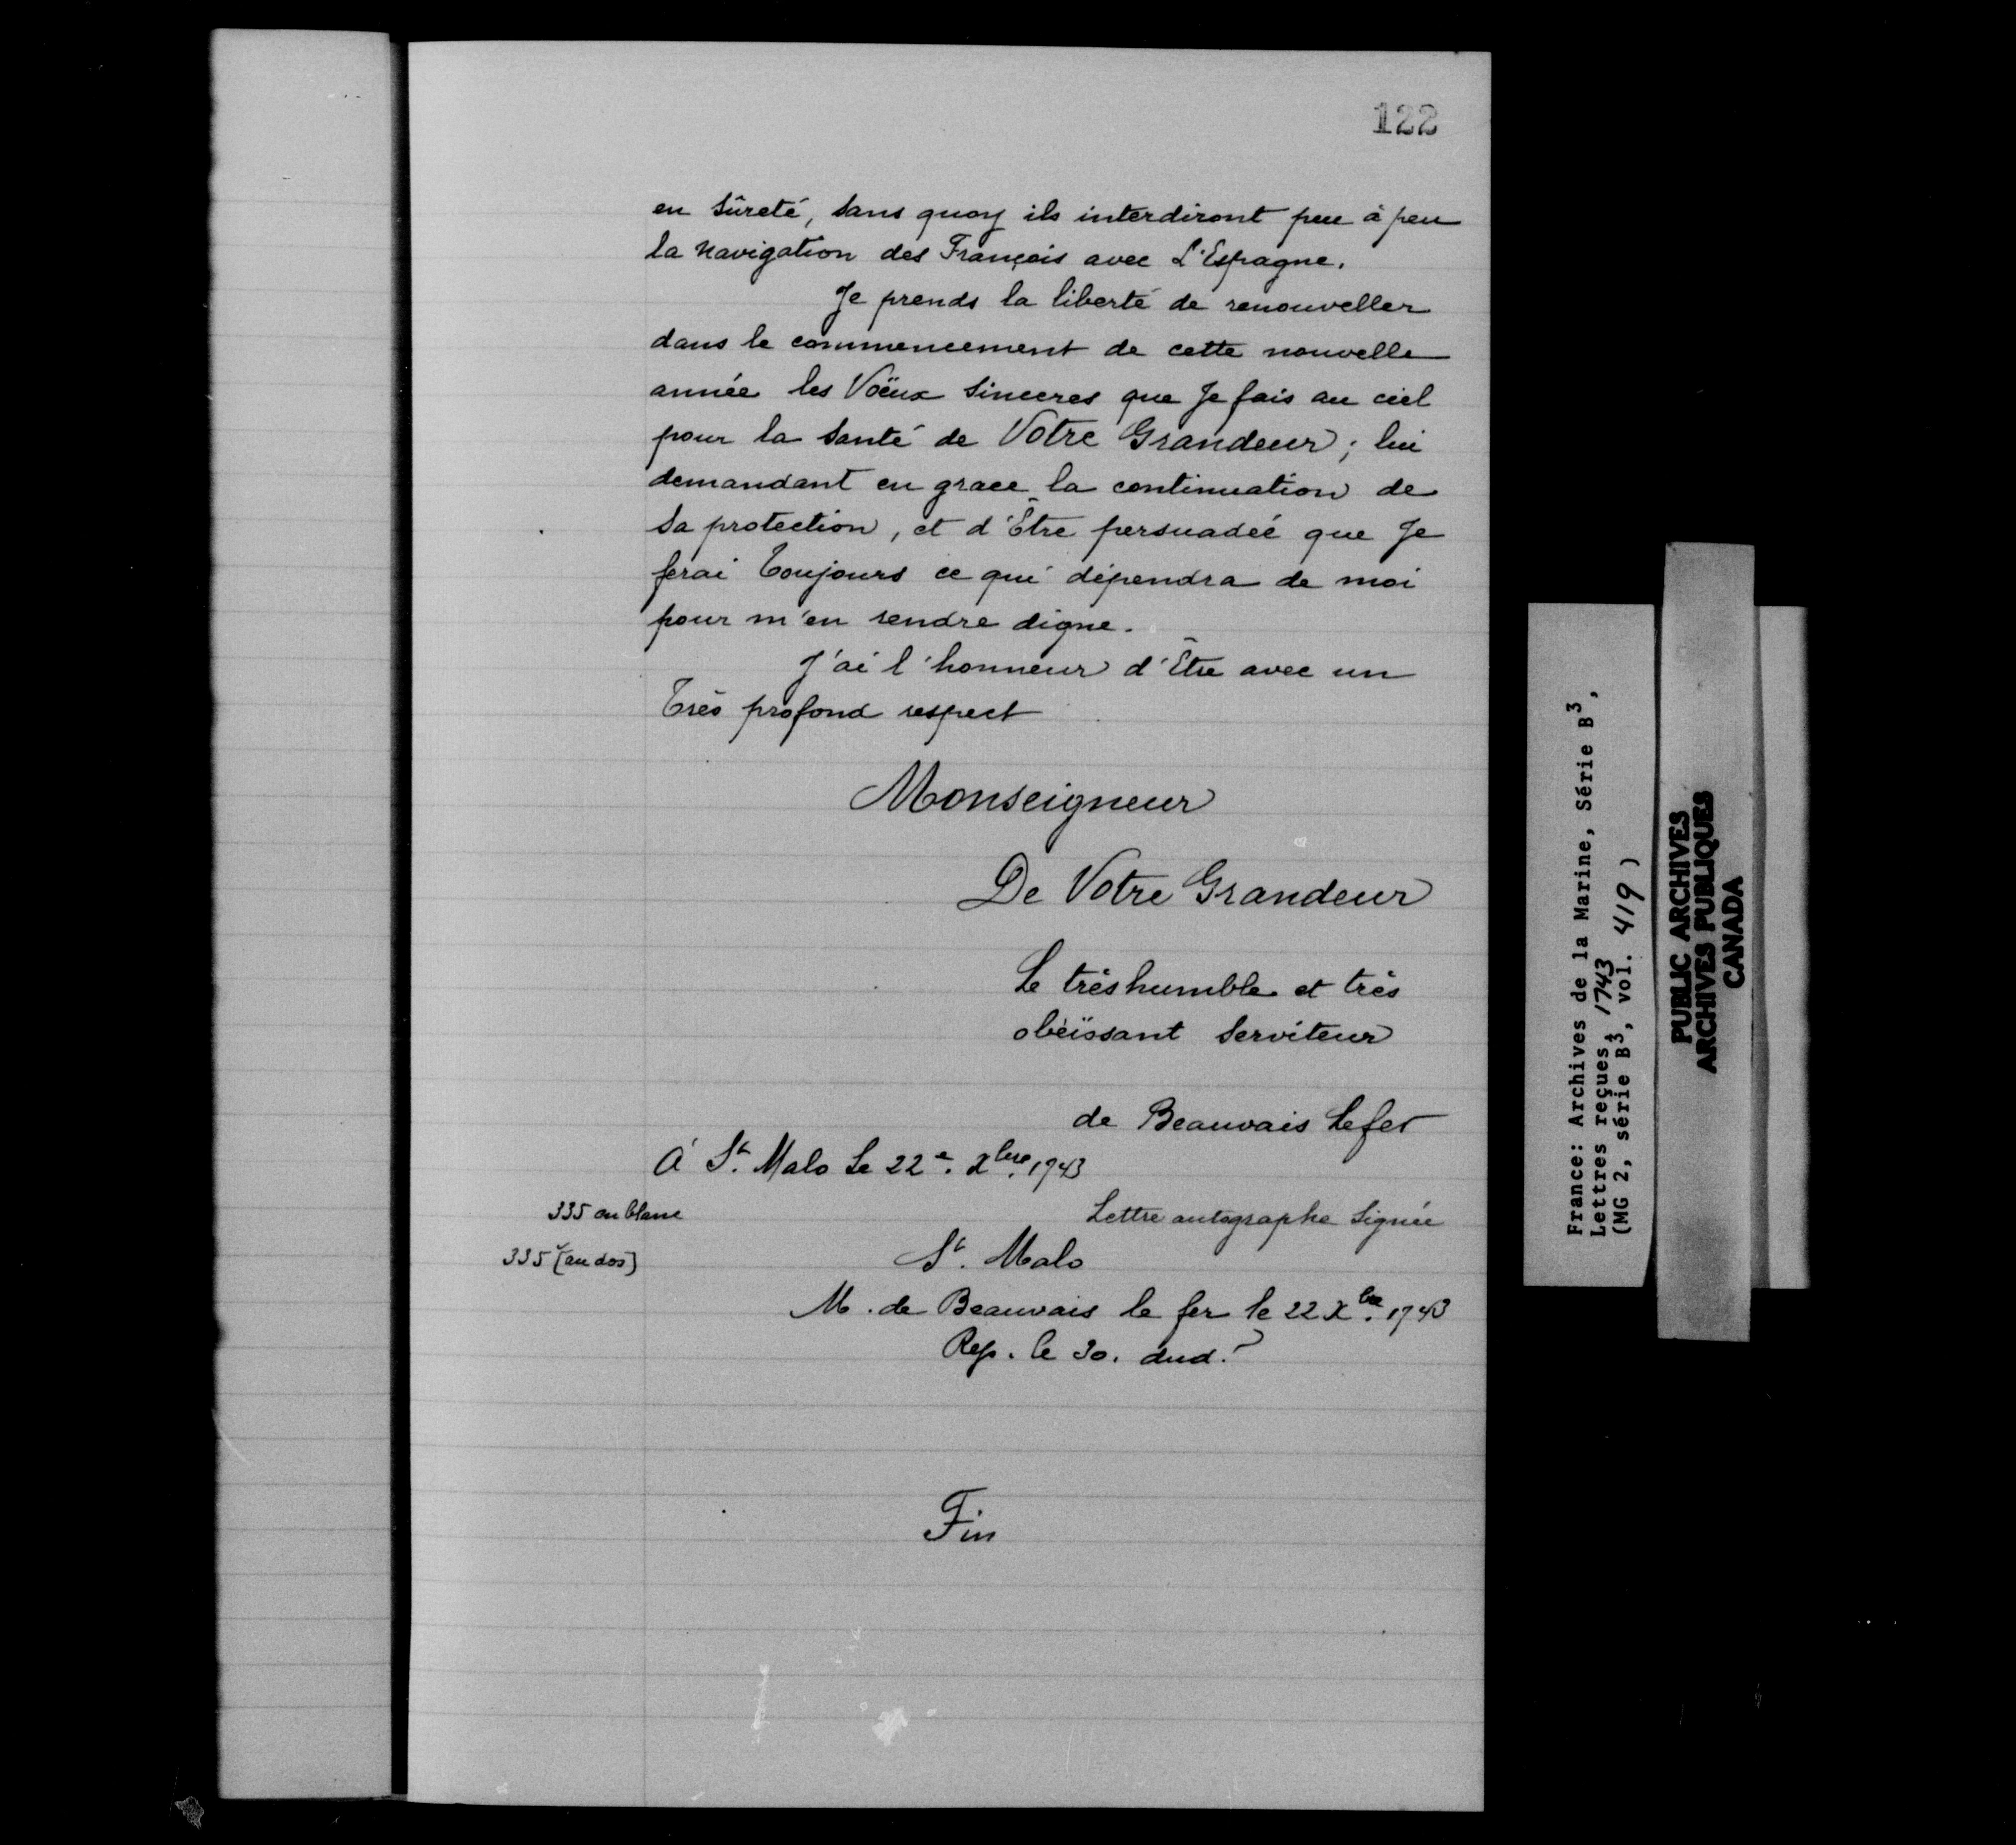 122
en sûreté, sans quoy ils interdiront peu à peu
la navigation des François avec L'Espagne.
Je prends la liberté de renouveller
dans le commencement de cette nouvelle
année les Voëux sinceres que Je fais au ciel
pour la santé de Votre Grandeur; lui
demandant en grace la continuation de
sa protection, et d'Être persuadéé que Je
ferai Toujours ce qui dépendra de moi
pour m'en rendre digne.
J'ai l'honneur d'Être avec un
Très profond respect
Monseigneur
De Votre Grandeur
Le très humble et très
obéïssant serviteur
de Beauvais Lefer
À St. Malo Le 22e. Xbre. 1743
335 en blanc
Lettre autographe signée
335v [au dos]
St. Malo
M. de Beauvais le fer le 22 Xbre. 1743
Rep. le 30. dud.
Fin
France: Archives de la Marine, Série B3,
Lettres reçues, 1743
(MG 2, série B3, vol. 419)
PUBLIC ARCHIVES
ARCHIVES PUBLIQUES
CANADA